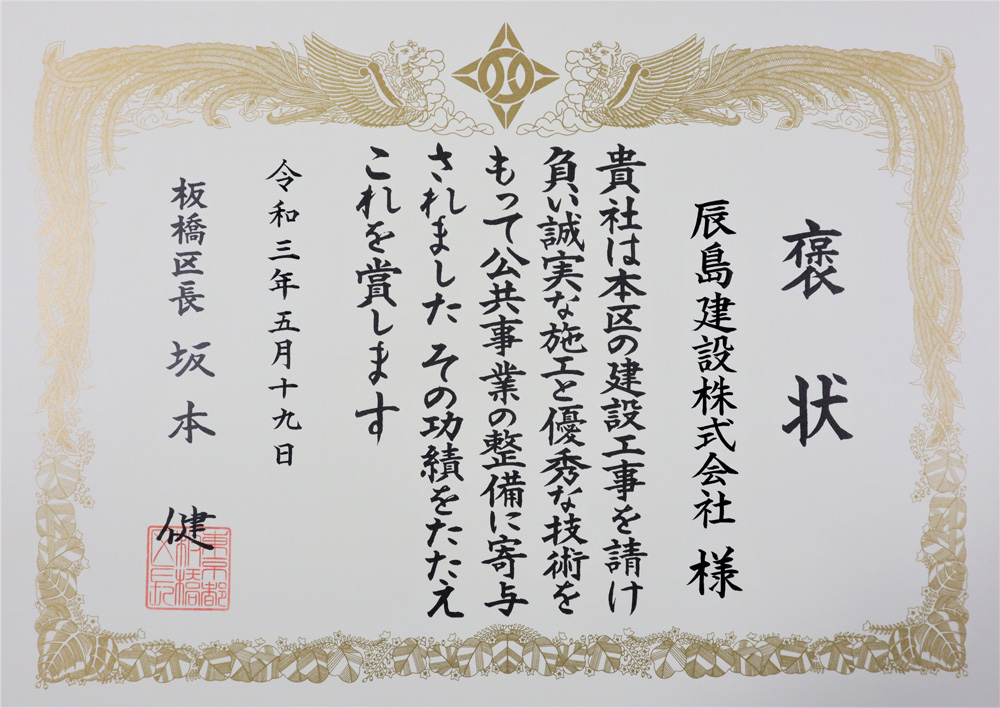 褒状
辰島建設株式会社 様
貴社は本区の建設工事を請け
負い誠実な施工と優秀な技術を
もって公共事業の整備に寄与
されました その功績をたたえ
これを賞します
令和三年五月十九日
板橋区長 坂本 健
東京都
板橋
区長